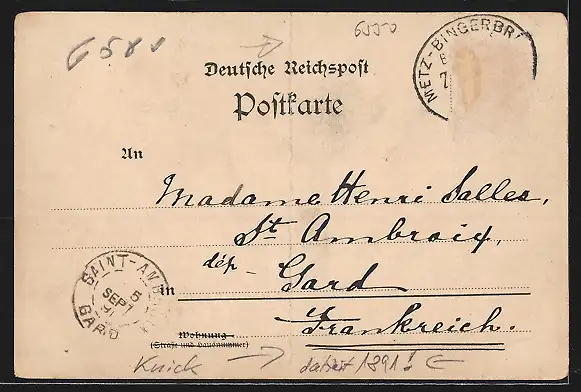 6580
METZ-BINGERBR
Deutsche Reichspost
Postkarte
An
Madame Henri Salles,
St Ambroix,
dép - Gard
in
Frankreich.
SAINT-AMB
5
SEPT
91
GARD
Wohnung
(Straße und Hausnummer)
Knick → datiert 1891!